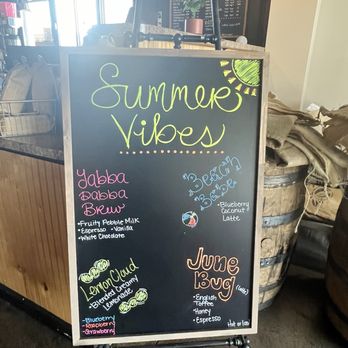 Summer
Vibes
Yabba
Dabba
Brew
•Fruity Pebble Milk
•Espresso •Vanilla
•White Chocolate
Beach
Babe
•Blueberry
Coconut
Latte
Lemon Cloud
•Blended Creamy
Lemonade
•Blueberry
•Raspberry
•Strawberry
June
Bug
(latte)
•English
Toffee
•Honey
•Espresso
Hot or Iced